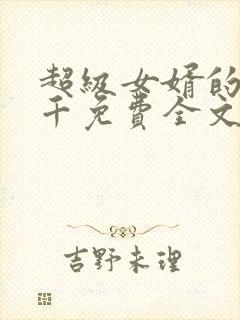 超级女婿的
千免费全文
吉野未理